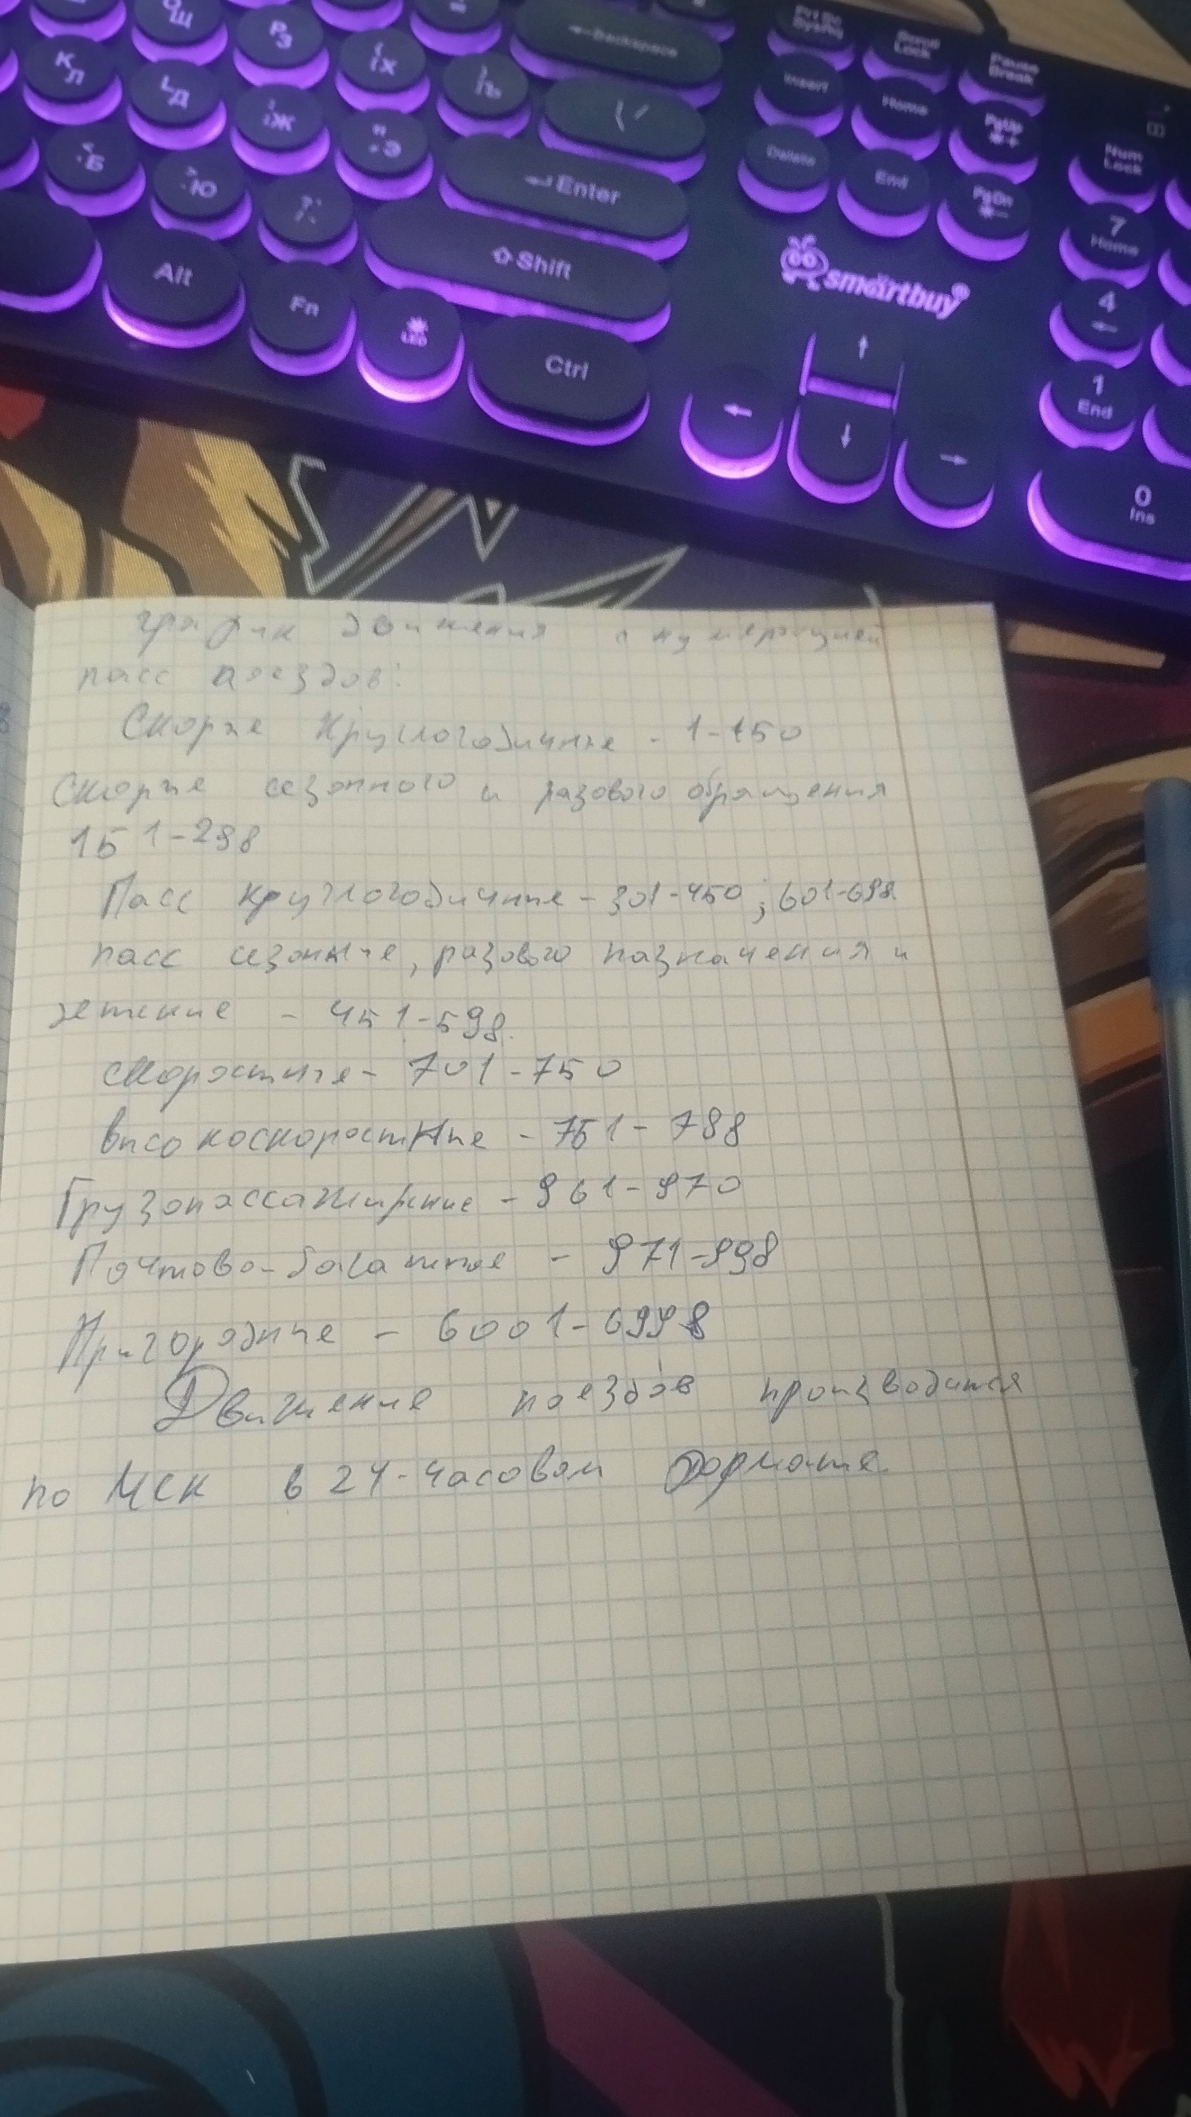 О Щ
P З
{ [ Х
} ] Ъ
←Backspace
PrtSc SysRq
Scroll Lock
Pause Break
K Л
L Д
: ; Ж
" ' Э
Insert
Home
PgUp
Num Lock
< , Б
> . Ю
? /
↵Enter
Delete
End
PgDn
7 Home
Alt
Fn
LED
⇧Shift
Ctrl
smartbuy
4 ←
↑
← ↓ →
1 End
0 Ins
график движения с нумерацией
пасс поездов:
Скорые Круглогодичные - 1-150
Скорые сезонного и разового обращения
151-298
Пасс круглогодичные - 301-450; 601-698
пасс сезонные, разового назначения и
летние - 451-598.
скоростные - 701-750
высокоскоростные - 751-788
Грузопассажирские - 961-970
Почтово-багажные - 971-998
Пригородные - 6001-6998
Движение поездов производится
по МСК в 24-часовом формате.